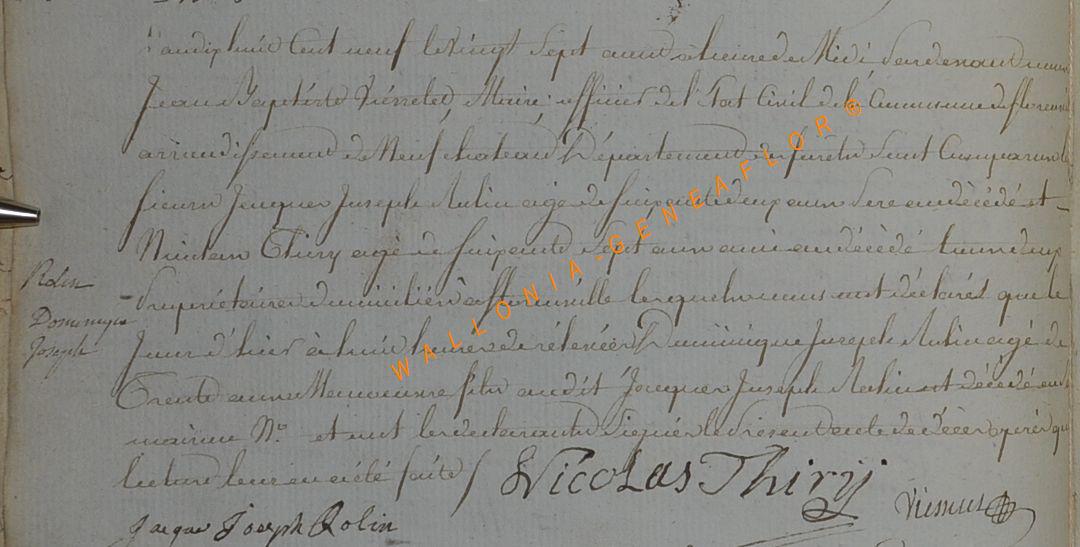 L'an dix huit Cent neuf le vingt Sept aout à heure de Midi Pardevant nous
Jean Baptiste Maire officier de l'Etat Civil de la Commune de florenville
arrondissement de Neufchateau Département des forets sont Comparus les
sieurs Jacques Joseph Rolin agé de soixante deux ans Pere au décédé et
Nicolas Thiry agé de soixante Sept ans ami au décédé tous deux
Propriétaires domiciliés à florenville lesquels nous ont déclarés que le
Jour d'hier à huit heures de rélevées Dominique Joseph Rolin agé de
Trente ans Manoeuvre fils audit Jacques Joseph Rolin est décédé en sa
maison N° et ont les declarants Signés le Présent acte de décès après que
lecture leur en a été faite
Nicolas Thiry
Jacque Joseph Rolin
Rolin
Dominique
Joseph
WALLONIA-GENEAFLOR©